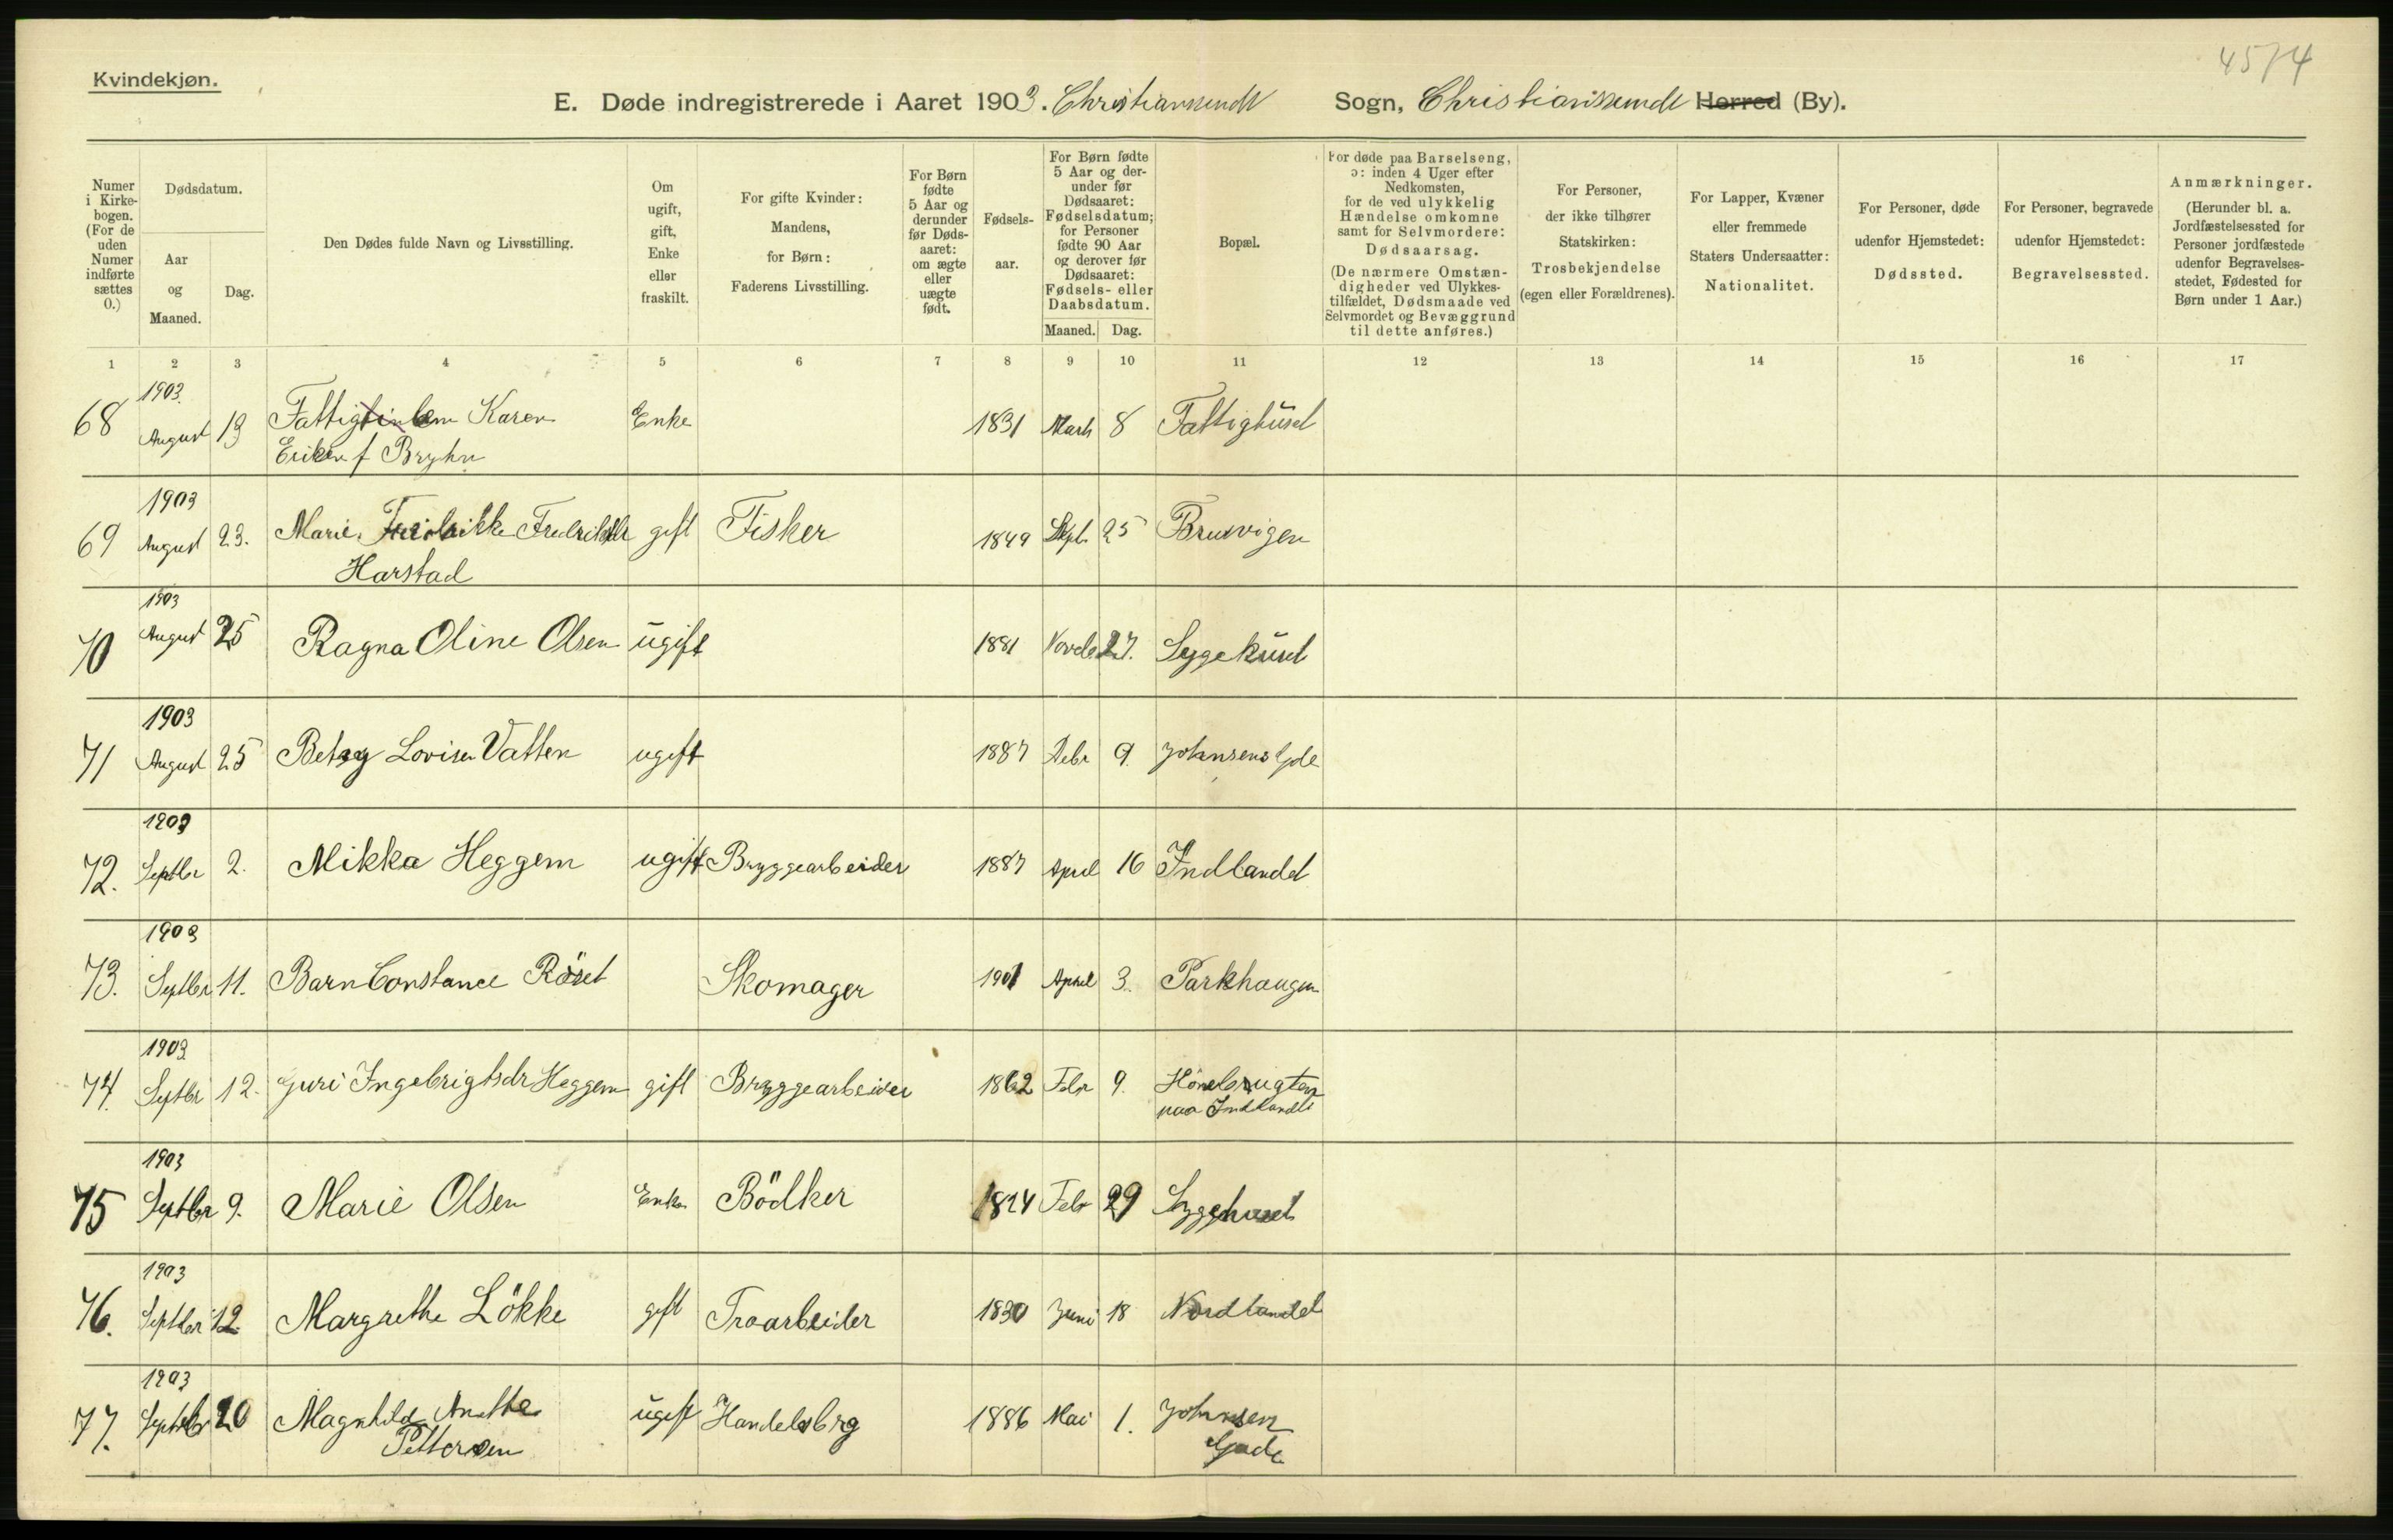 4574
Kvindekjøn.
E. Døde indregistrerede i Aaret 1903. Christianssundt Sogn, Christianssundt Herred (By).
Numer i Kirke-bogen. (For de uden Numer indførte sættes 0.)
Dødsdatum.
Aar og Maaned.
Dag.
Den Dødes fulde Navn og Livsstilling.
Om ugift, gift, Enke eller fraskilt.
For gifte Kvinder: Mandens, for Børn: Faderens Livsstilling.
For Børn fødte 5 Aar og derunder før Døds-aaret: om ægte eller uægte født.
Fødsels-aar.
For Børn fødte 5 Aar og der-under før Dødsaaret: Fødselsdatum; for Personer fødte 90 Aar og derover før Dødsaaret: Fødsels- eller Daabsdatum.
Maaned. Dag.
Bopæl.
For døde paa Barselseng, ɔ: inden 4 Uger efter Nedkomsten, for de ved ulykkelig Hændelse omkomne samt for Selvmordere: Dødsaarsag. (De nærmere Omstæn-digheder ved Ulykkes-tilfældet, Dødsmaade ved Selvmordet og Bevæggrund til dette anføres.)
For Personer, der ikke tilhører Statskirken: Trosbekjendelse (egen eller Forældrenes).
For Lapper, Kvæner eller fremmede Staters Undersaatter: Nationalitet.
For Personer, døde udenfor Hjemstedet: Dødssted.
For Personer, begravede udenfor Hjemstedet: Begravelsessted.
Anmærkninger. (Herunder bl. a. Jordfæstelsessted for Personer jordfæstede udenfor Begravelses-stedet, Fødested for Børn under 1 Aar.)
1 2 3 4 5 6 7 8 9 10 11 12 13 14 15 16 17
1903.
68 August 13 Karen Enke 1831 Marts 8 Fattighuset
f Bryhn
1903
69 August 23. Marie gift Fisker 1849 Sept. 25
Harstad
1903
70 August 25 Ragna Oline Olsen ugift 1881 27. Sygehuset
1903
71 August 25 Betsy Lovise Vatten ugift 1887 9. Johnsens Gde
1903
72. Septbr 2. Mikka Heggem ugift Bryggearbeider 1887 April 16 Indlandet
1903
73. Septbr 11. Barn Constance Röset Skomager 1901 April 3. Parkhaugen
1903
74. Septbr 12. Guri Ingebrigtsdr Heggem gift Bryggearbeider 1862 Febr 9.
paa Indlandet
1903
75 Septbr 9. Marie Olsen Enke Bödker 1824 Febr 29 Sygehuset
1903
76. Septbr 12 Margrethe Lökke gift 1830 Juni 18 Nordlandet
1903
77. Septbr 20 Magnhild ugift Handelsbrg 1886 Mai 1. Johnsen
Pettersen Gade